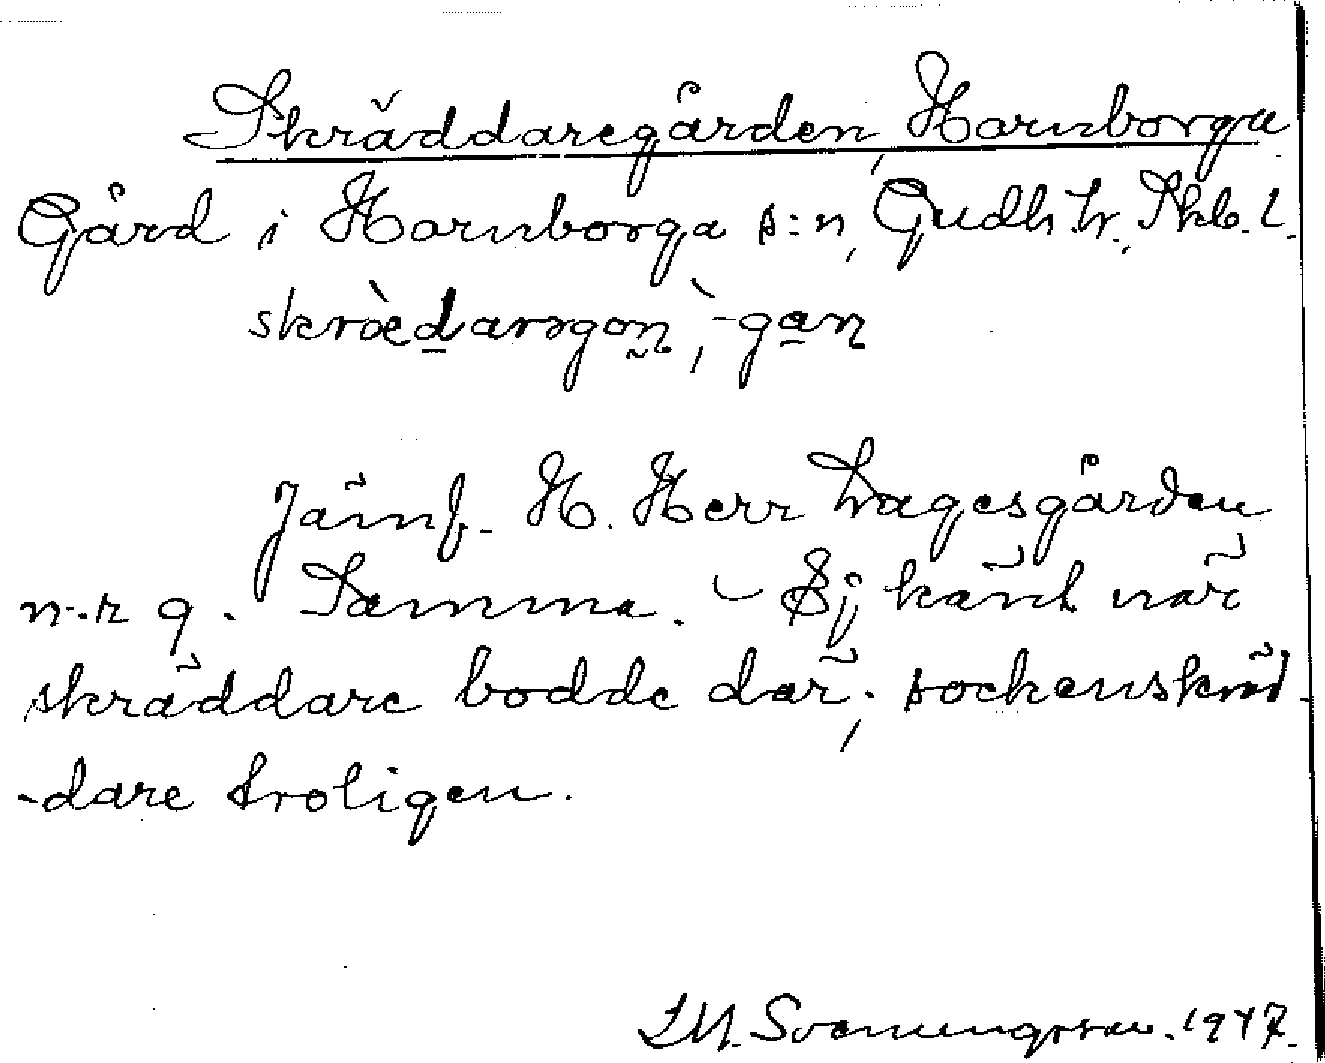 Skräddaregården, Hornborga
Gård i Hornborga s:n, Gudh. hr., Skb. l.
skrædarəgon, -gan
Jämf. H. Herr Tragesgården
n-r 9. Samma. - Ej känt när
skräddare bodde där; sockenskräd-
-dare troligen.
Svenungsson. 1947.